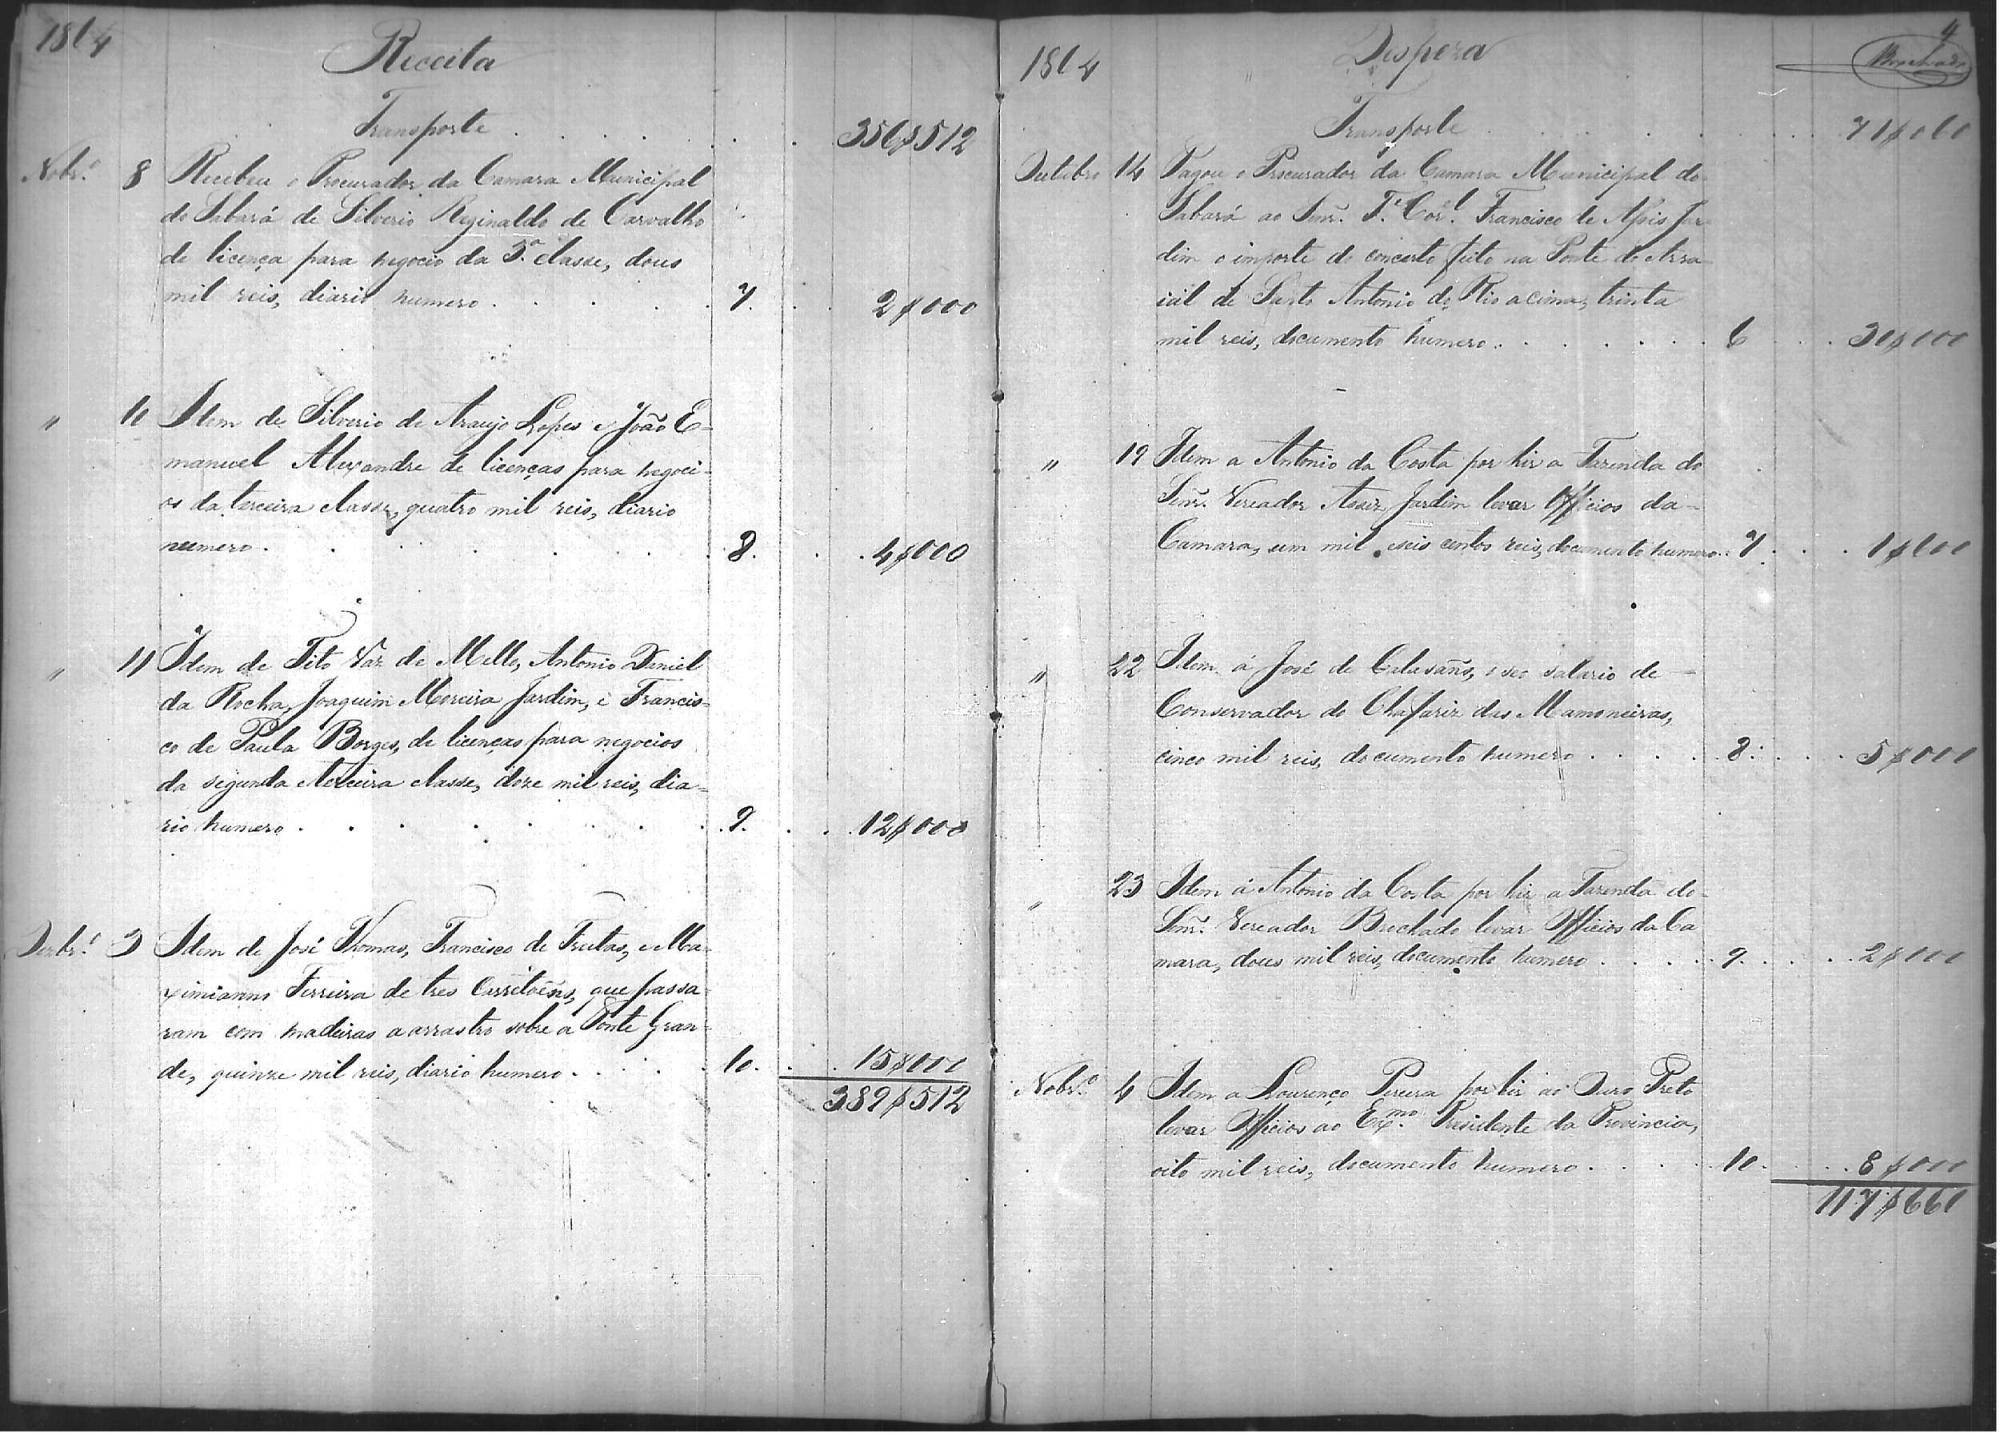 1864
Receita
Transporte . . . . . . . 356$512
Nobr.º 8 Recebeu o Procurador da Camara Municipal
do Sabará de Silverio Reginaldo de Carvalho
de licença para negocio da 3.ª classe, dous
mil reis, diario numero . . . . . 7. . . 2$000
" 10 Idem de Silverio de Araujo Lopes e João E-
manuel Alexandre de licenças para negoci-
os da terceira classe, quatro mil reis, diario
numero . . . . . . . 8. . . 4$000
" 11 Idem de Tito Vaz de Mello, Antonio Daniel
da Rocha, Joaquim Moreira Jardim, e Francis-
co de Paula Borges, de licenças para negocios
da segunda e terceira classe, doze mil reis, dia-
rio numero . . . . . . . 9. . . 12$000
Dezbr.º 3 Idem de José Thomas, Francisco de Freitas, e Ma-
ximianno Ferreira de tres Carretoẽns, que passa-
ram com madeiras a arrastro sobre a Ponte Gran-
de, quinze mil reis, diario numero . . . . 10. . . 15$000
389$512
4
Brochado
1864
Despeza
Transporte . . . . . . . 71$060
Outubro 14 Pagou o Procurador da Camara Municipal do
Sabará ao Senr. T.e Cor.l Francisco de Assis Jar-
dim o importe do concerto feito na Ponte do Arra-
ial de Santo Antonio do Rio acima, trinta
mil reis, documento numero . . . . . . 6 . . . 30$000
" 19 Idem a Antonio da Costa por hir a Fazenda do
Senr. Vereador Assiz Jardim levar Officios da
Camara, um mil e seis centos reis, documento numero . . 7. . . . 1$600
" 22 Idem á José de Calasans, o seo salario de
Conservador do Chafariz das Mamoneiras,
cinco mil reis, documento numero . . . . . 8: . . . 5$000
" 23 Idem á Antonio da Costa por hir a Fazenda do
Senr. Vereador Brochado levar Officios da Ca
mara, dous mil reis, documento numero . . . . . 9. . . . 2$000
Nobr.º 4 Idem a Lourenço Pereira por hir ao Ouro Preto
levar Officios ao Exmo. Presidente da Provincia,
oito mil reis, documento numero . . . . 10. . . . 8$000
117$660